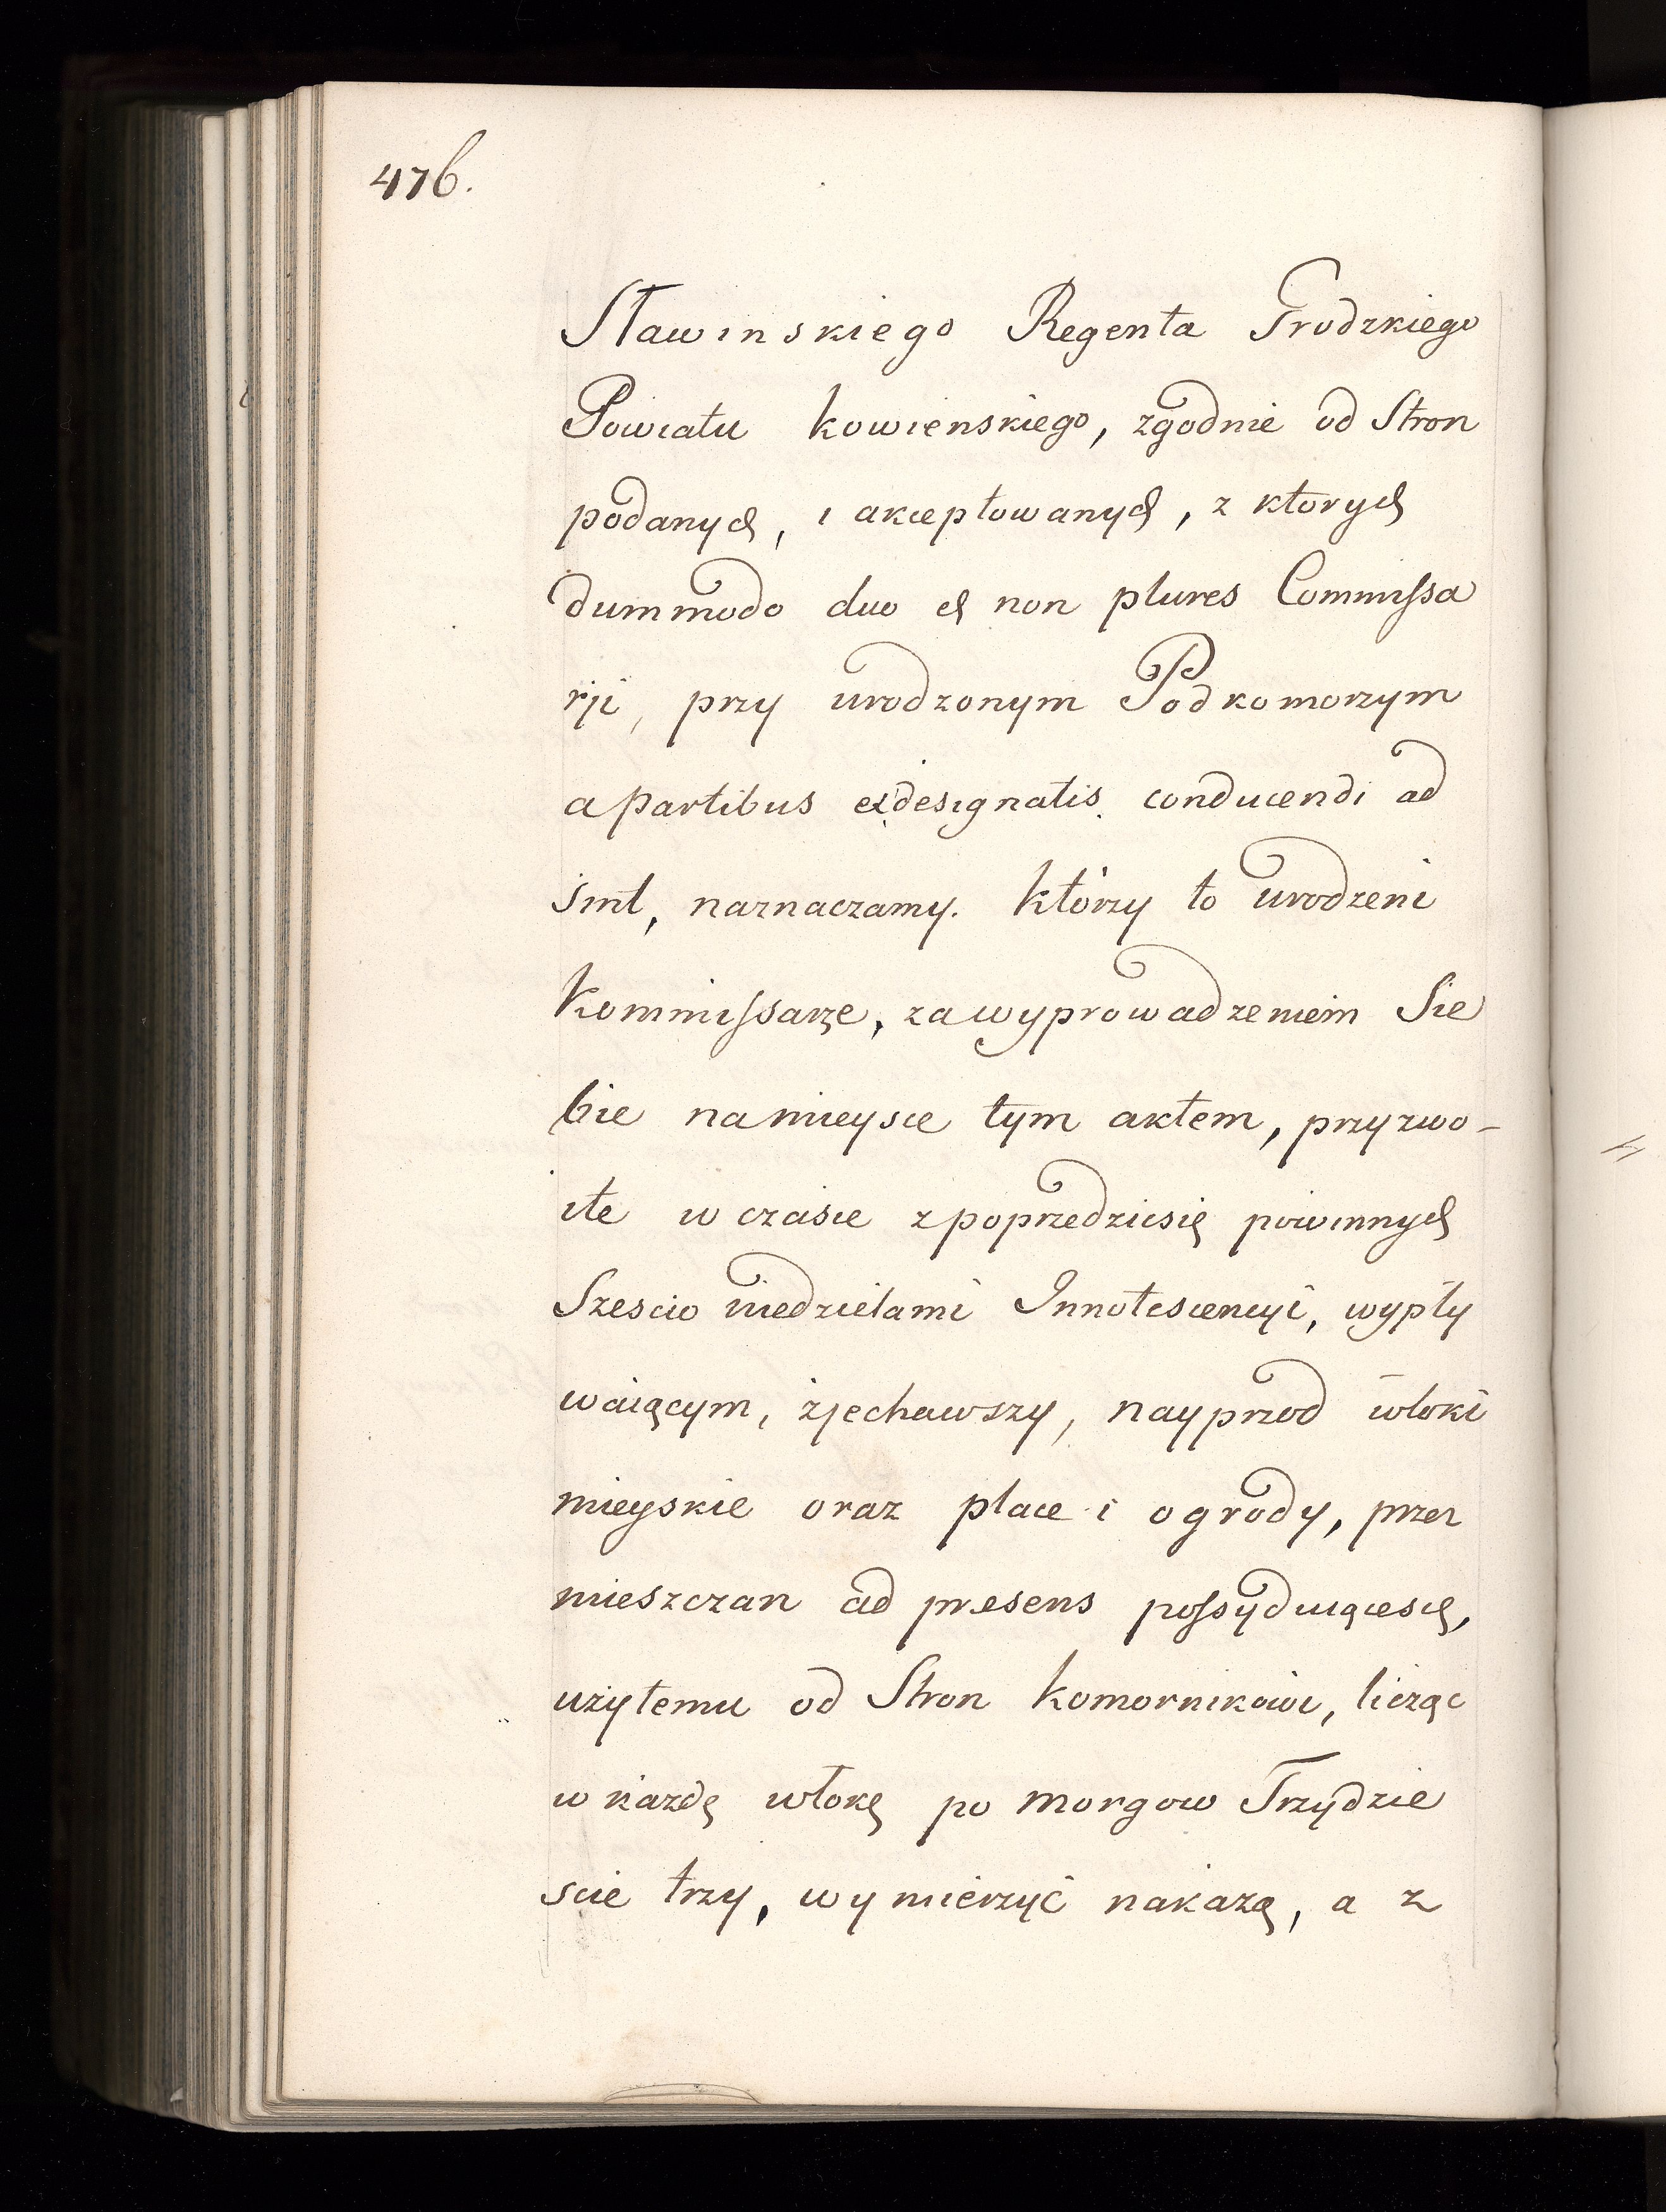 476.
Sławinskiego Regenta Grodzkiego
Powiatu kowienskiego, zgodnie od Stron
podanych, i akceptowanych, z ktorych
dummodo duo et non plures Commissa
rji, przy urodzonym Podkomorzym
a partibus ex designatis conducendi ad
smt, naznaczamy. którzy to urodzeni
Kommissarze, za wyprowadzeniem Sie
bie na mieysce tym aktem, przyzwo-
ite w czasie z poprzedzicsię powinnych
Szescio niedzielami Innotescencyi, wypły
waiącym, zjechawszy, nayprzod włoki
mieyskie oraz place i ogrody, przez
mieszczan ad presens possyduiącesię,
użytemu od Stron komornikowi, licząc
w każdę włokę po morgow Trzydzie
scie trzy, wymierzyć nakażą, a z